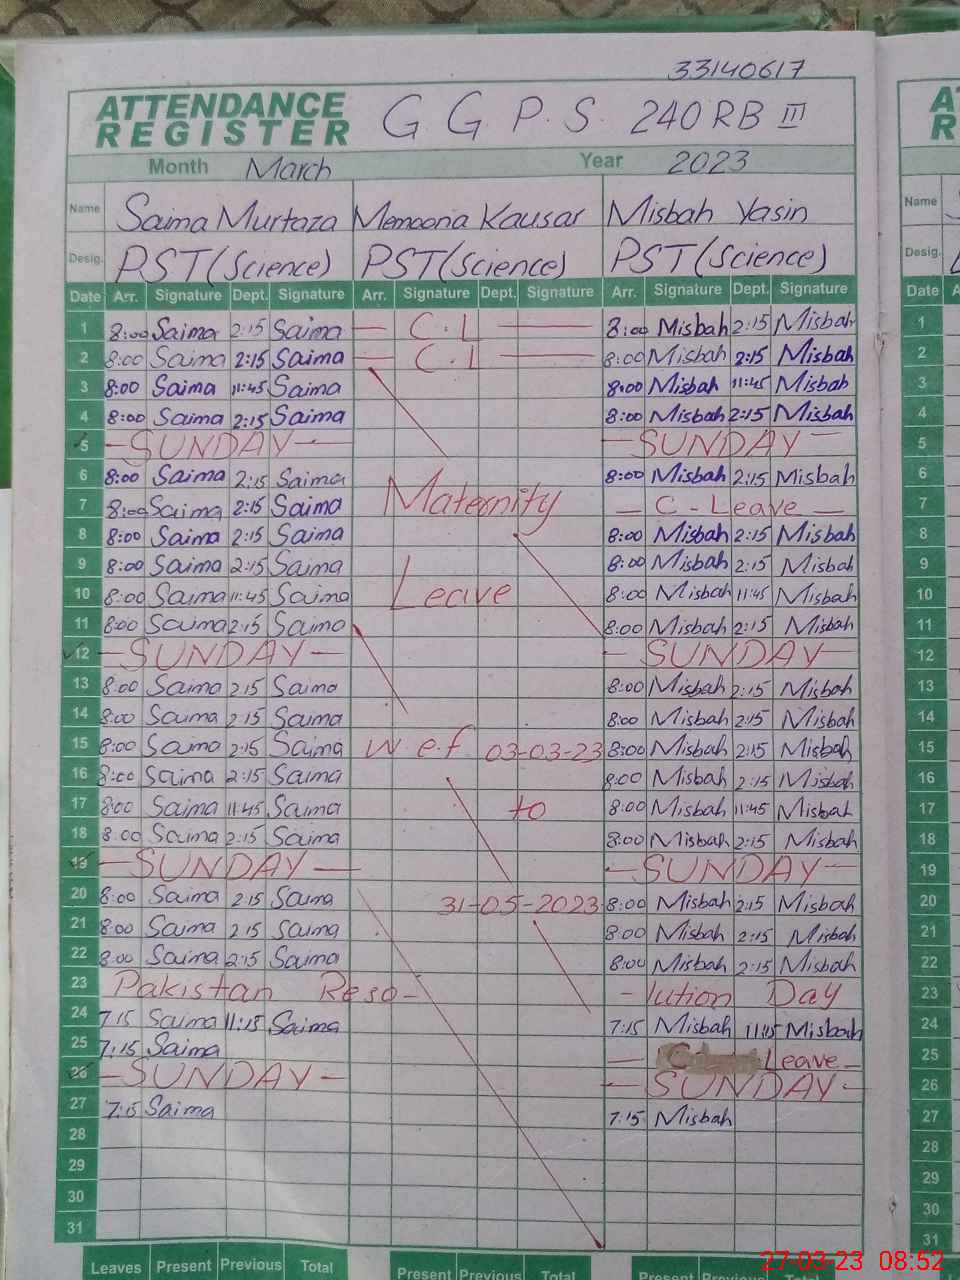 33140617
ATTENDANCE REGISTER G G P. S. 240 RB III
Month March Year 2023
Name Saima Murtaza Memoona Kausar Misbah Yasin Name
Desig. PST (Science) PST (Science) PST (Science) Desig.
Date Arr. Signature Dept. Signature Arr. Signature Dept. Signature Arr. Signature Dept. Signature Date
1 8:00 Saima 2:15 Saima — C.L — 8:00 Misbah 2:15 Misbah 1
2 8:00 Saima 2:15 Saima — C.L — 8:00 Misbah 2:15 Misbah 2
3 8:00 Saima 11:45 Saima 8:00 Misbah 11:45 Misbah 3
4 8:00 Saima 2:15 Saima 8:00 Misbah 2:15 Misbah 4
5 — SUNDAY — — SUNDAY — 5
6 8:00 Saima 2:15 Saima 8:00 Misbah 2:15 Misbah 6
7 8:00 Saima 2:15 Saima Maternity — C - Leave — 7
8 8:00 Saima 2:15 Saima 8:00 Misbah 2:15 Misbah 8
9 8:00 Saima 2:15 Saima 8:00 Misbah 2:15 Misbah 9
10 8:00 Saima 11:45 Saima Leave 8:00 Misbah 11:45 Misbah 10
11 8:00 Saima 2:15 Saima 8:00 Misbah 2:15 Misbah 11
12 — SUNDAY — — SUNDAY — 12
13 8:00 Saima 2:15 Saima 8:00 Misbah 2:15 Misbah 13
14 8:00 Saima 2:15 Saima 8:00 Misbah 2:15 Misbah 14
15 8:00 Saima 2:15 Saima w.e.f 03-03-23 8:00 Misbah 2:15 Misbah 15
16 8:00 Saima 2:15 Saima 8:00 Misbah 2:15 Misbah 16
17 8:00 Saima 11:45 Saima to 8:00 Misbah 11:45 Misbah 17
18 8:00 Saima 2:15 Saima 8:00 Misbah 2:15 Misbah 18
19 — SUNDAY — — SUNDAY — 19
20 8:00 Saima 2:15 Saima 31-05-2023 8:00 Misbah 2:15 Misbah 20
21 8:00 Saima 2:15 Saima 8:00 Misbah 2:15 Misbah 21
22 8:00 Saima 2:15 Saima 8:00 Misbah 2:15 Misbah 22
23 Pakistan Reso- -lution Day 23
24 7:15 Saima 11:15 Saima 7:15 Misbah 11:15 Misbah 24
25 7:15 Saima — Leave — 25
26 — SUNDAY — — SUNDAY — 26
27 7:15 Saima 7:15 Misbah 27
28 28
29 29
30 30
31 31
Leaves Present Previous Total Present Previous Total Present Previous Total
27-03-23 08:52